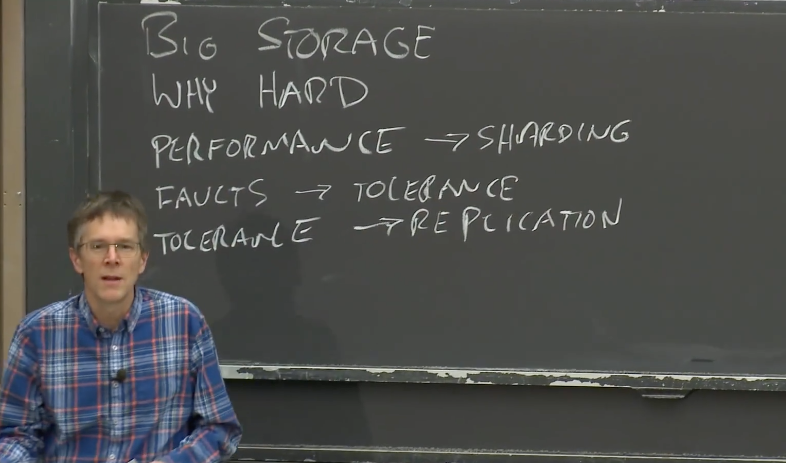 BIG STORAGE
WHY HARD
PERFORMANCE → SHARDING
FAULTS → TOLERANCE
TOLERANCE → REPLICATION